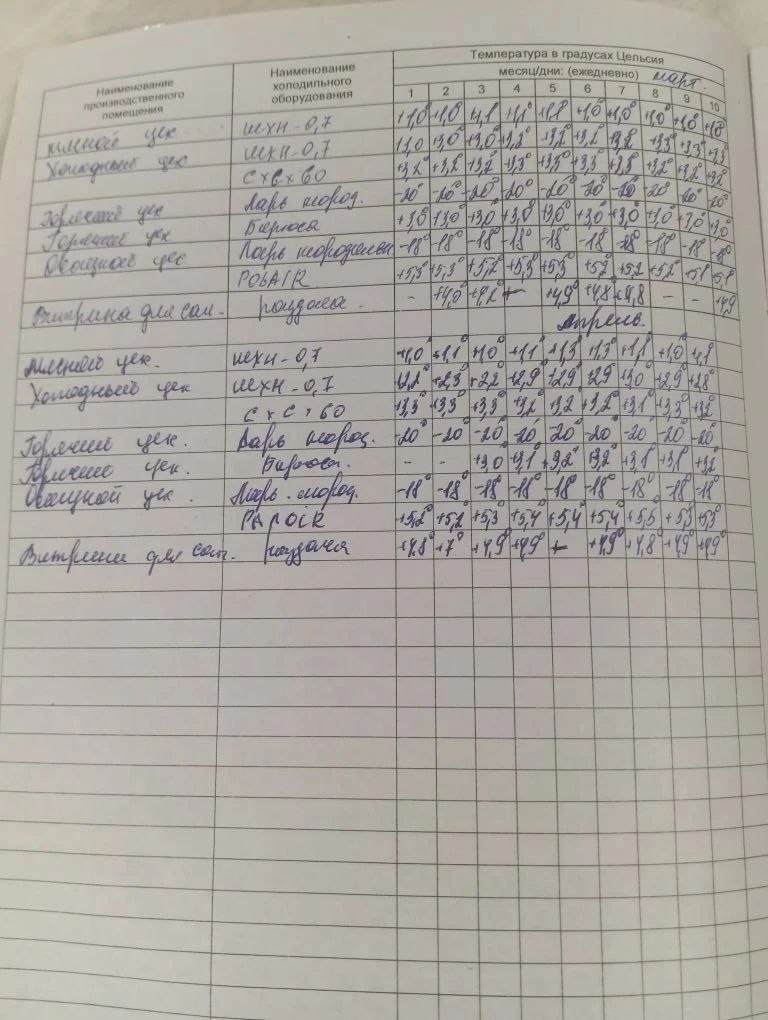 Наименование производственного помещения Наименование холодильного оборудования Температура в градусах Цельсия
месяц/дни: (ежедневно) март.
1 2 3 4 5 6 7 8 9 10
Мясной цех ШХН-0,7 +1,0° +1,0° +1,1° +1,1° +1,1° +1,0° +1,0° +1,0° +1,0° +1,0°
Холодный цех ШХН-0,7 +3,0 +3,0° +3,0° +3,2° +3,2° +3,2° +3,2° +3,3° +3,3° +3,3°
С×С×60 +3,2° +3,2° +3,2° +3,3° +3,3° +3,3° +3,3° +3,2° +3,2° +3,2°
Горячий цех Ларь мороз. -20° -20° -20° -20° -20° -20° -20° -20° -20° -20°
Горячий цех Бирюса +3,0° +3,0° +3,0° +3,0° +3,0° +3,0° +3,0° +3,0° +3,0° +3,0°
Овощной цех Ларь морозильн -18° -18° -18° -18° -18° -18° -18° -18° -18° -18°
POLAIR +5,3° +5,3° +5,2° +5,3° +5,3° +5,2° +5,2 +5,2° +5,1 +5,1
Витрина для сал. раздола. - +4,9° +4,2° - +4,9° +4,8° +4,8 - - +4,9
Апрель.
Мясной цех. ШХН-0,7 +1,0° +1,1° +1,0° +1,1° +1,3° +1,3° +1,1° +1,0° +1,1°
Холодный цех ШХН-0,7 +2,2° +2,3° +2,2° +2,9° +2,9° +2,9 +3,0° +2,9° +2,8°
С×С×60 +3,3° +3,3° +3,3° +3,2° +3,2 +3,2° +3,1° +3,3° +3,2°
Горячий цех. Ларь мороз. -20° -20° -20° -20° -20° -20° -20° -20° -20°
Горячий цех. Бирюса. - - +3,0° +3,1° +3,2° +3,2° +3,1° +3,1° +3,2°
Овощной цех. Ларь. мороз. -18° -18° -18° -18° -18° -18° -18° -18° -18°
PAPOIR +5,2° +5,2° +5,3° +5,4° +5,4° +5,4° +5,5 +5,3 +5,3°
Витрина для сал. раздоля +4,8° +7° +4,9° +4,9° - +4,9° +4,8° +4,9° +4,9°